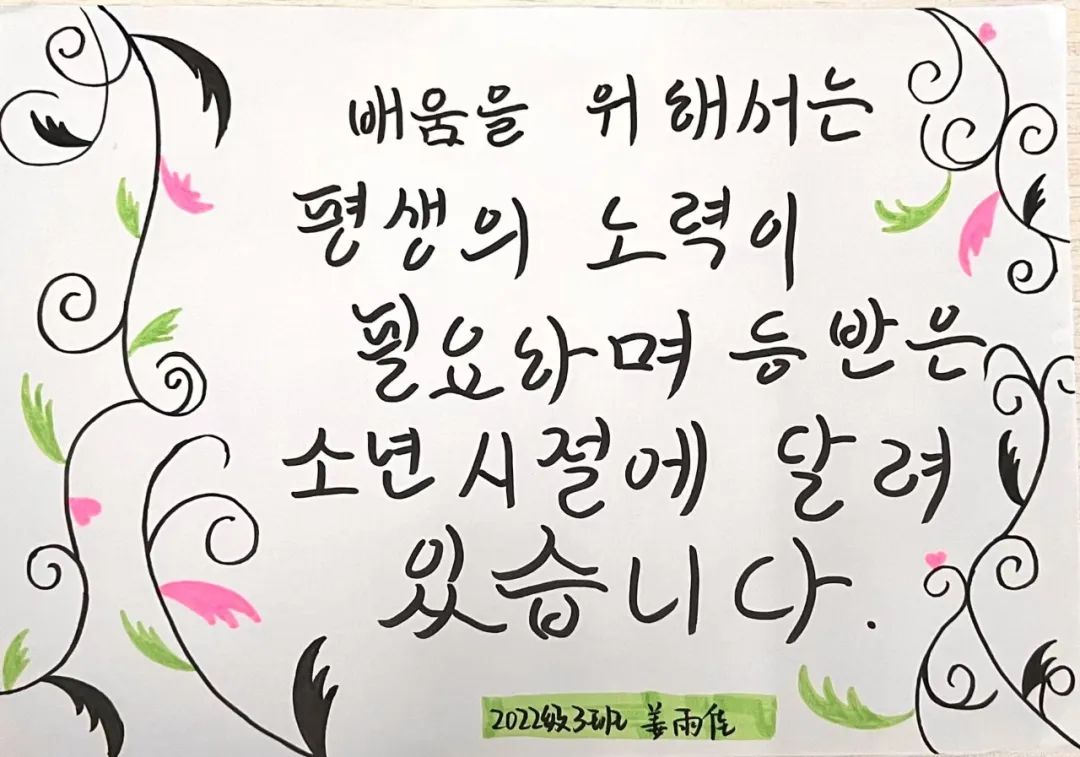 배움을 위해서는
평생의 노력이
필요하며 등반은
소년시절에 달려
있습니다.
2022级3班 姜雨佳